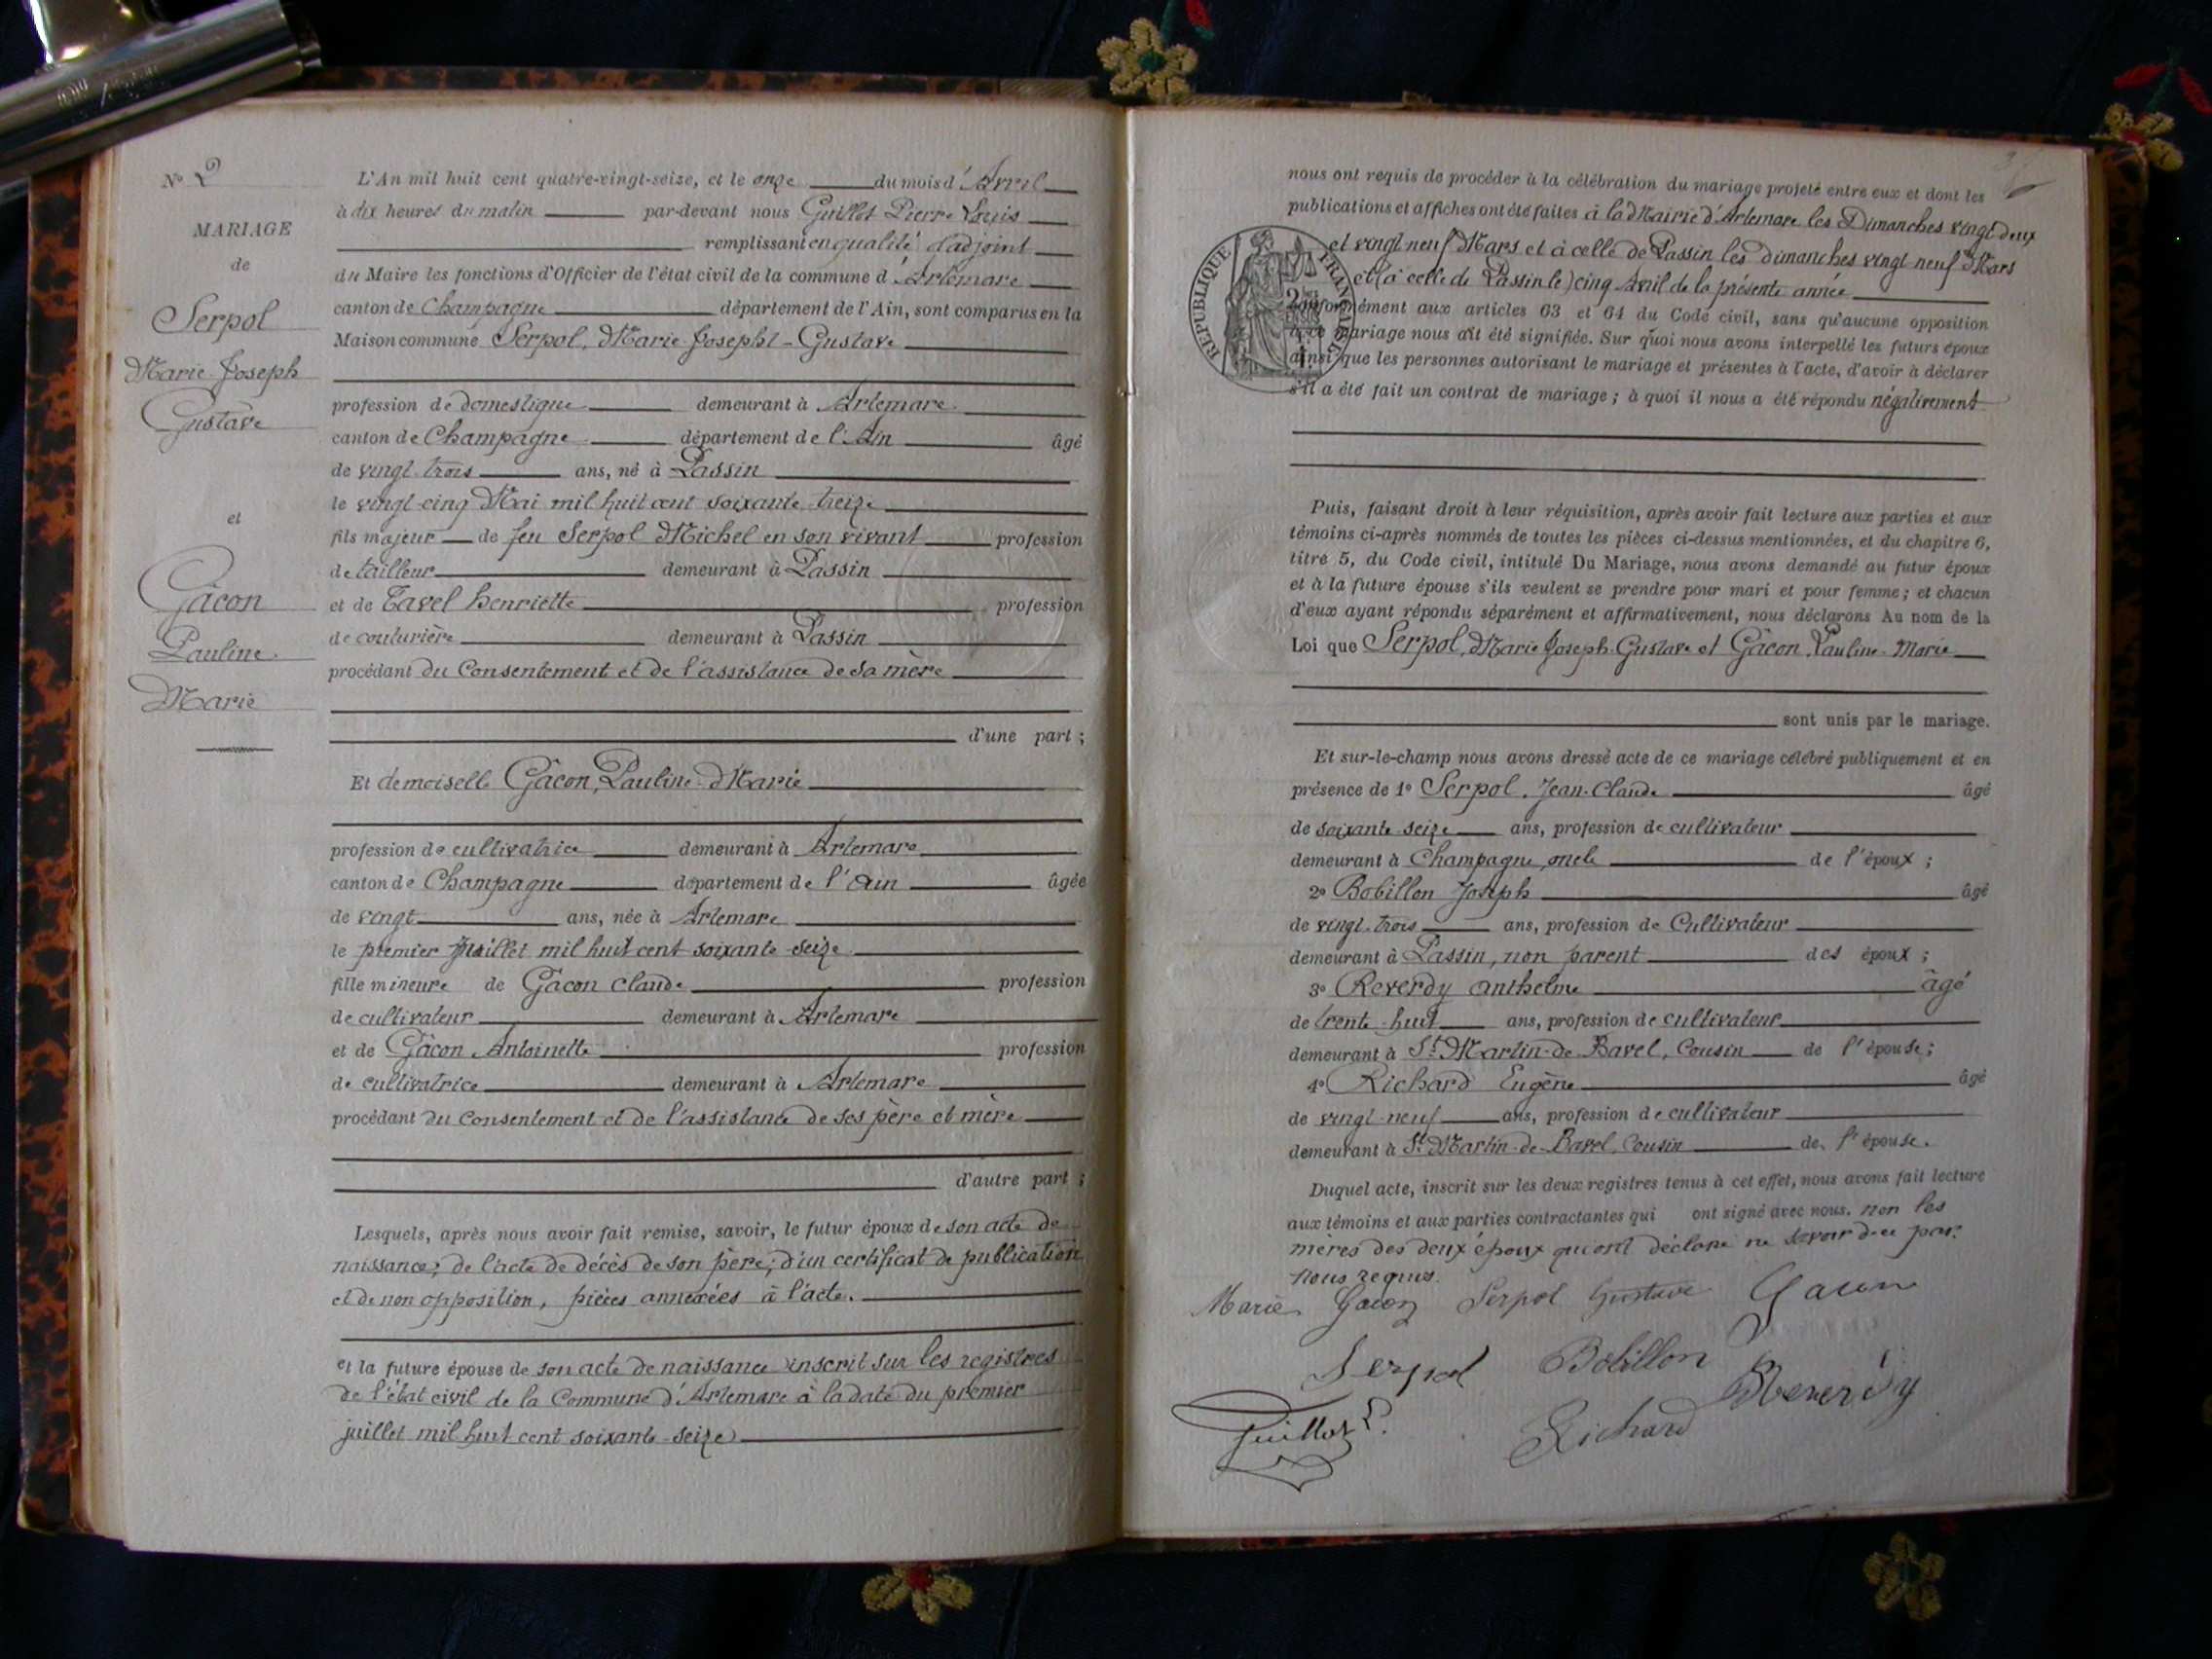 N° 2
MARIAGE
de
Serpol
Marie-Joseph
Gustave
et
Gâcon
Pauline
Marie
L'An mil huit cent quatre-vingt-seize, et le onze du mois d'Avril
à dix heures du matin par-devant nous Guillot Pierre Louis
remplissant en qualité d'adjoint
du Maire les fonctions d'Officier de l'état civil de la commune d'Artemare
canton de Champagne département de l'Ain, sont comparus en la
Maison commune Serpol, Marie-Joseph-Gustave
profession de domestique demeurant à Artemare
canton de Champagne département de l'Ain âgé
de vingt-trois ans, né à Passin
le vingt-cinq Mai mil huit cent soixante-treize
fils majeur de feu Serpol Michel en son vivant profession
de tailleur demeurant à Passin
et de Tavel henriette profession
de couturière demeurant à Passin
procédant du Consentement et de l'assistance de sa mère
d'une part ;
Et demoiselle Gâcon, Pauline-Marie
profession de cultivatrice demeurant à Artemare
canton de Champagne département de l'Ain âgée
de vingt ans, née à Artemare
le premier juillet mil huit cent soixante-seize
fille mineure de Gâcon Claude profession
de cultivateur demeurant à Artemare
et de Gâcon Antoinette profession
de cultivatrice demeurant à Artemare
procédant du Consentement et de l'assistance de ses père et mère
d'autre part ;
Lesquels, après nous avoir fait remise, savoir, le futur époux de son acte de
naissance; de l'acte de décès de son père; d'un certificat de publication
et de non opposition, pièces annexées à l'acte.
et la future épouse de son acte de naissance inscrit sur les registres
de l'état civil de la Commune d'Artemare à la date du premier
juillet mil huit cent soixante-seize
nous ont requis de procéder à la célébration du mariage projeté entre eux et dont les
publications et affiches ont été faites à la Mairie d'Artemare les Dimanches vingt-deux
et vingt neuf Mars et à celle de Passin les dimanches vingt neuf Mars
et (à celle de Passin le) cinq Avril de la présente année
RÉPUBLIQUE FRANÇAISE
conformément aux articles 63 et 64 du Code civil, sans qu'aucune opposition
à ce mariage nous ait été signifiée. Sur quoi nous avons interpellé les futurs époux
ainsi que les personnes autorisant le mariage et présentes à l'acte, d'avoir à déclarer
s'il a été fait un contrat de mariage ; à quoi il nous a été répondu négativement
Puis, faisant droit à leur réquisition, après avoir fait lecture aux parties et aux
témoins ci-après nommés de toutes les pièces ci-dessus mentionnées, et du chapitre 6,
titre 5, du Code civil, intitulé Du Mariage, nous avons demandé au futur époux
et à la future épouse s'ils veulent se prendre pour mari et pour femme ; et chacun
d'eux ayant répondu séparément et affirmativement, nous déclarons Au nom de la
Loi que Serpol, Marie-Joseph-Gustave et Gâcon, Pauline-Marie
sont unis par le mariage.
Et sur-le-champ nous avons dressé acte de ce mariage célébré publiquement et en
présence de 1° Serpol, Jean-Claude âgé
de soixante-seize ans, profession de cultivateur
demeurant à Champagne, oncle de l'époux ;
2° Bobillon Joseph âgé
de vingt-trois ans, profession de Cultivateur
demeurant à Passin, non parent des époux ;
3° Reverdy anthelme âgé
de trente-huit ans, profession de cultivateur
demeurant à St Martin-de-Bavel, Cousin de l'épouse ;
4° Richard Eugène âgé
de vingt-neuf ans, profession de cultivateur
demeurant à St Martin-de-Bavel, Cousin de l'épouse.
Duquel acte, inscrit sur les deux registres tenus à cet effet, nous avons fait lecture
aux témoins et aux parties contractantes qui ont signé avec nous. non les
mères des deux époux qui ont déclaré ne savoir de ce par
nous requis.
Marie Gacon Serpol Gustave Gacon
Serpol Bobillon
Reverdy
Guillot P. Richard